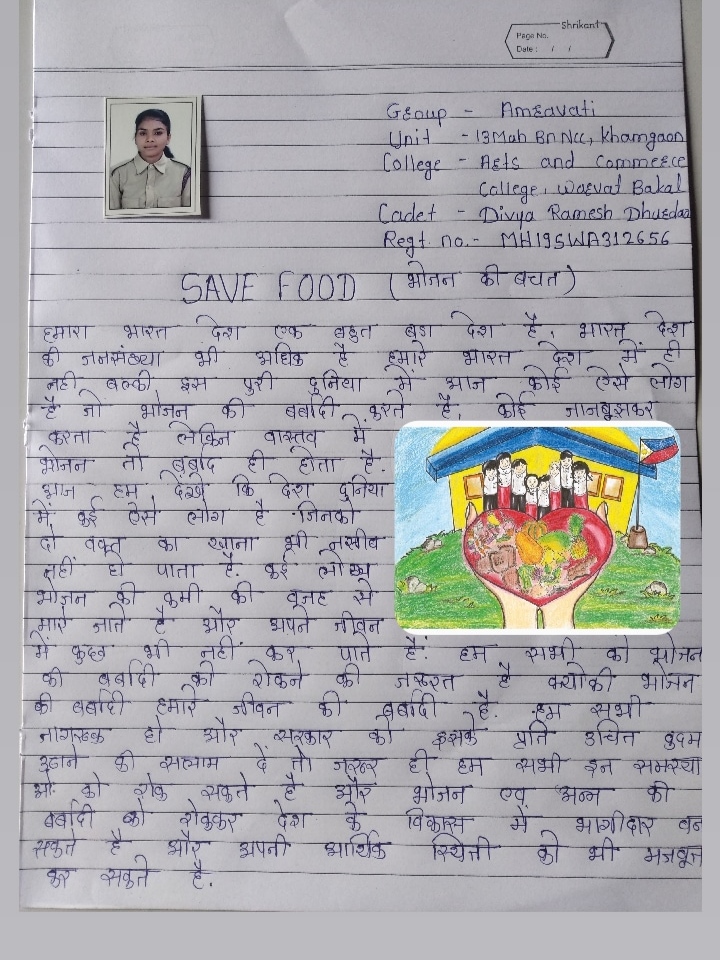 Shrikant
Page No.
Date : / /
Group - Amravati
Unit - 13 Mah Bn Ncc, Khamgaon
College - Arts and Commerce
College, Warvat Bakal
Cadet - Divya Ramesh Dhurdae
Regt. no. - MH19SWA312656
SAVE FOOD (भोजन की बचत)
हमारा भारत देश एक बहुत बडा देश है. भारत देश
की जनसंख्या भी अधिक है हमारे भारत देश में ही
नही बल्की इस पुरी दुनिया में आज कोई ऐसे लोग
है जो भोजन की बर्बादी करते है, कोई जानबूझकर
करता है लेकिन वास्तव में
भोजन तो बर्बाद ही होता है.
आज हम देखे कि देश दुनिया
में कई ऐसे लोग है जिनको
दो वक्त का खाना भी नसीब
नहीं हो पाता है. कई लोग
भोजन की कमी की वजह से
मारे जाते है और अपने जीवन
में कुछ भी नहीं कर पाते है. हम सभी को भोजन
की बर्बादी को रोकने की जरूरत है क्योकी भोजन
की बर्बादी हमारे जीवन की बर्बादी है. हम सभी
नागरूक हो और सरकार को इसके प्रति उचित कदम
उठाने की सलाम दें तो जरूर ही हम सभी इन समस्या
ओं को रोक सकते है और भोजन एवं अन्न की
बर्बादी को रोककर देश के विकास में भागीदार बन
सकते है और अपनी आर्थिक स्थिती को भी मजबूत
कर सकते है.